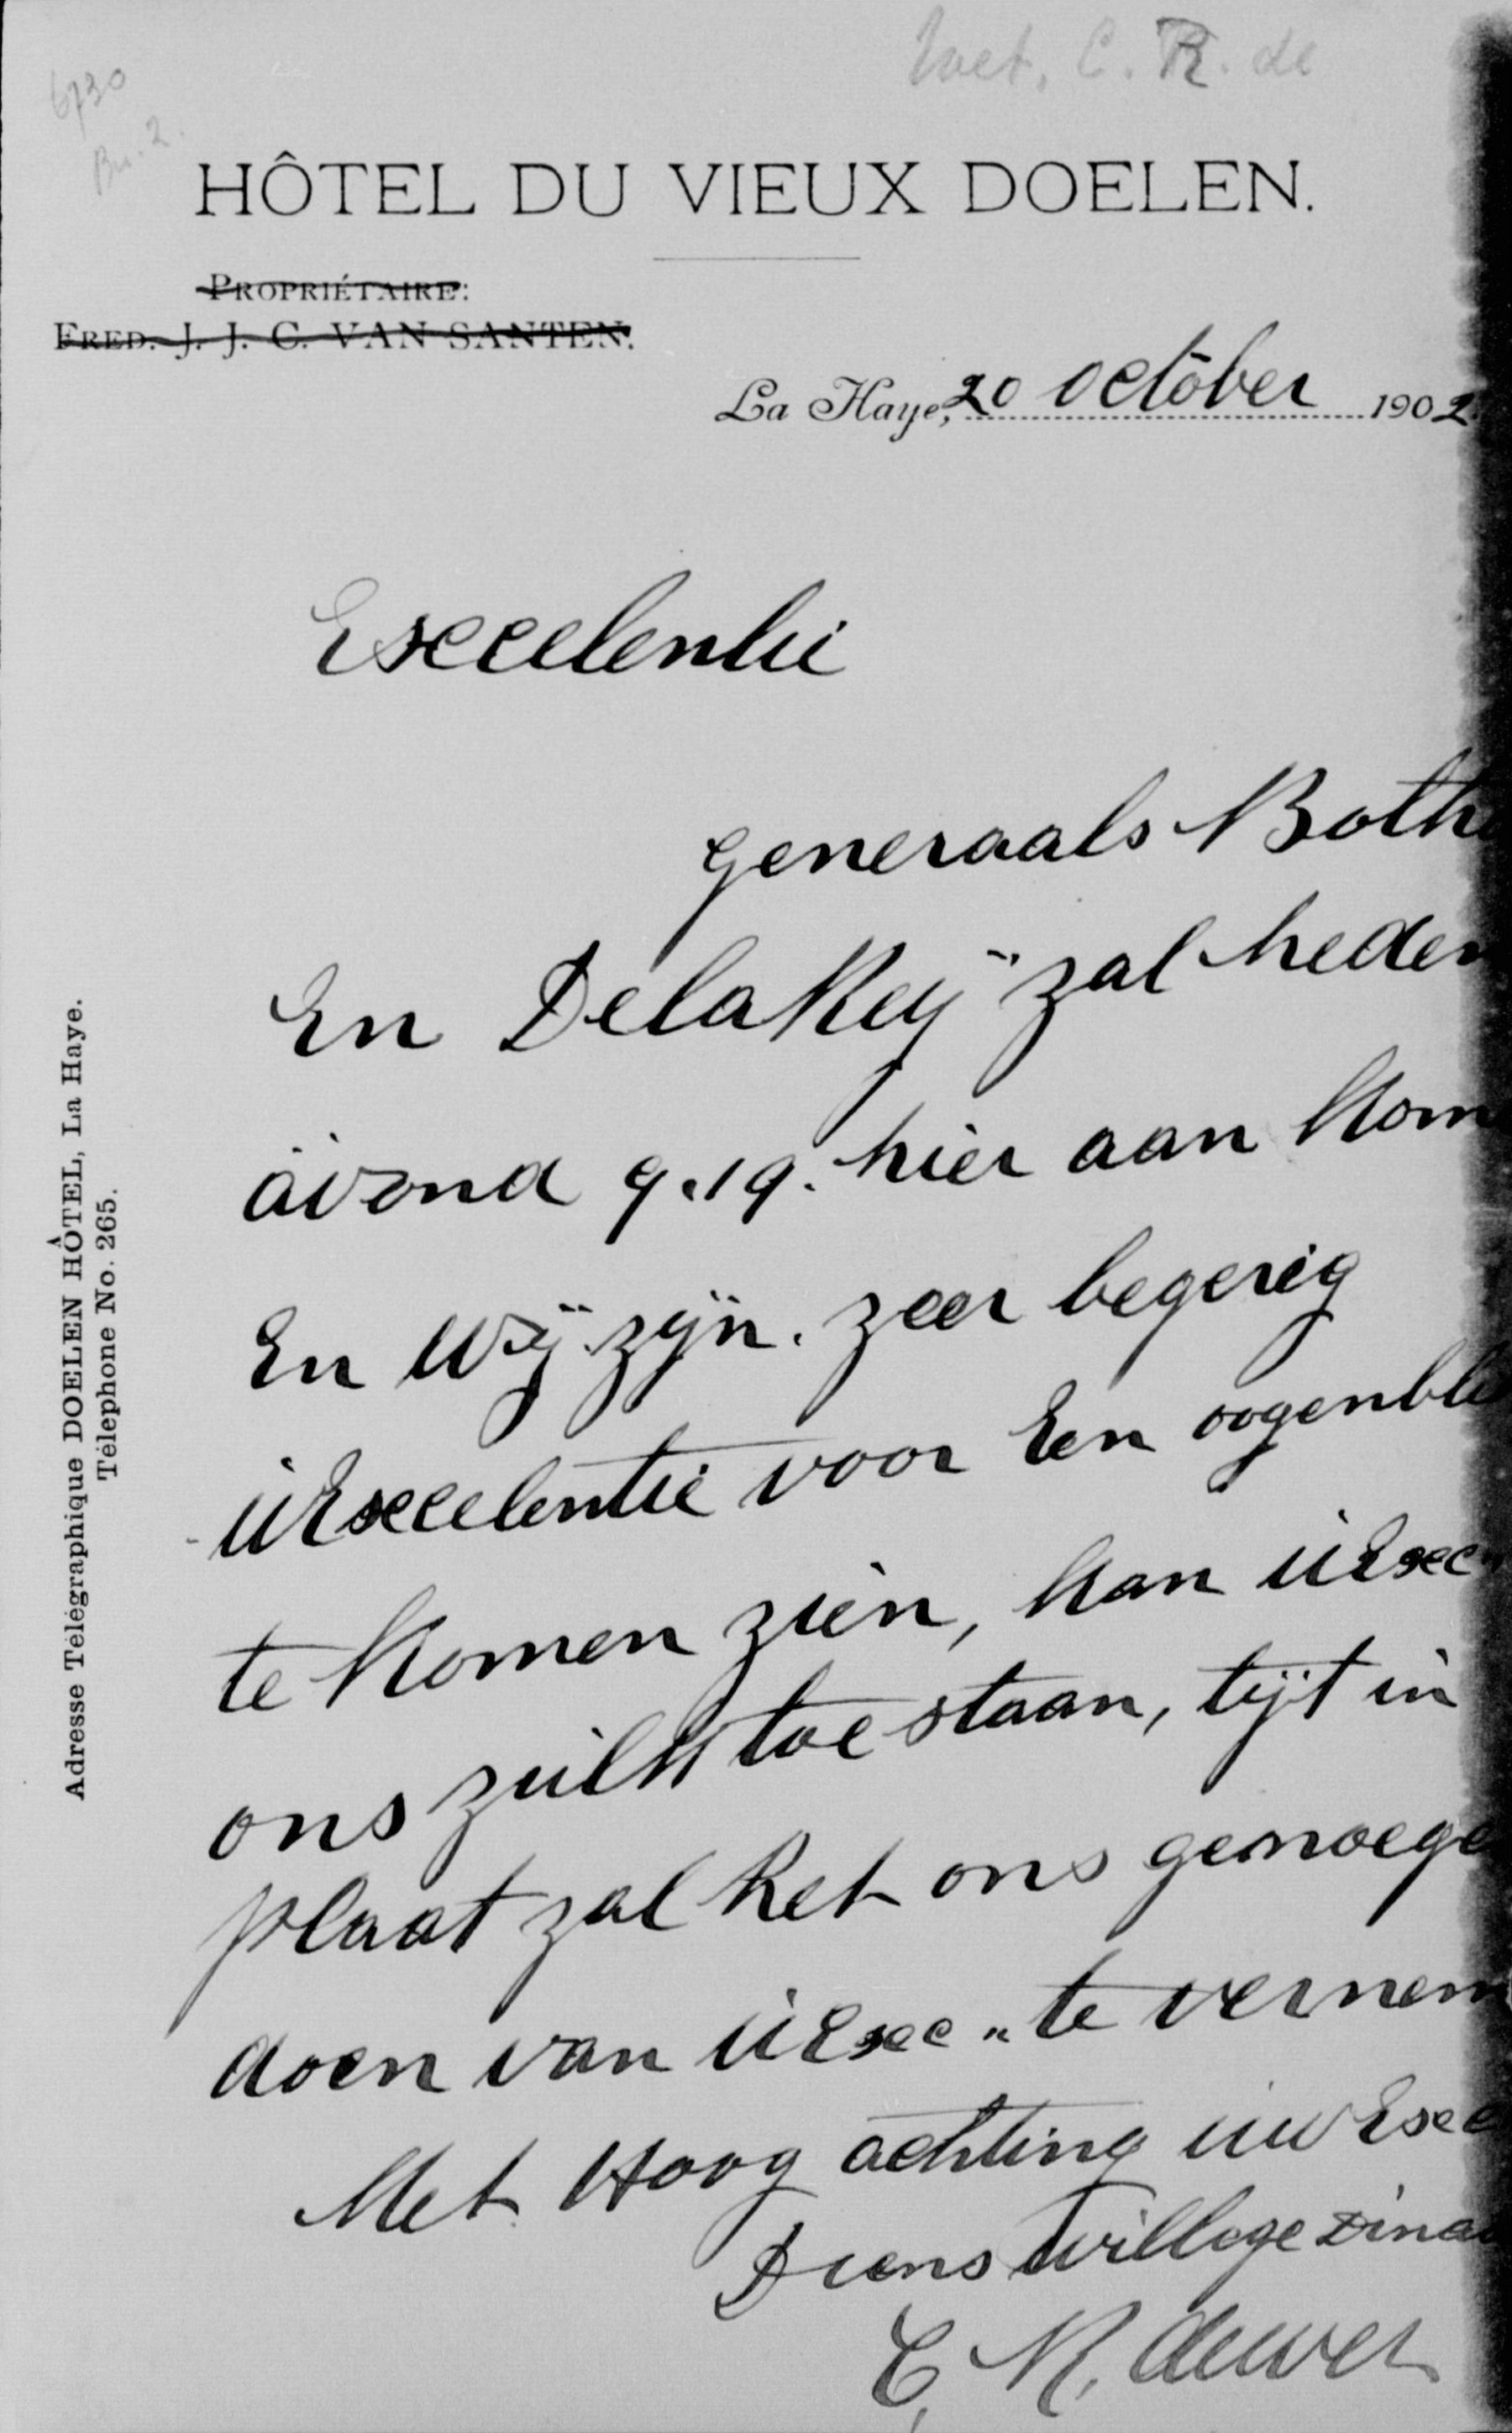 Wet, C. R. de
6730
Bu. 2.
HÔTEL DU VIEUX DOELEN.
PROPRIÉTAIRE:
FRED. J. J. C. VAN SANTEN.
La Haye, 20 October 1902
Exccelentie
generaals Botha
En Dela Reÿ zal heden
avond 9.19. hier aan kom
En wÿ zÿn. zeer begerig
uExccelentie voor Een oogenbli
te komen zien, kan uExcc
ons zulk toe staan, tÿt in
plaat zal het ons genoege
doen van uExcc „ te vernem
Met Hoog achting uw Excc
Diens willege dina
C. R. de wet
Adresse Télégraphique DOELEN HÔTEL, La Haye.
Télephone No. 265.